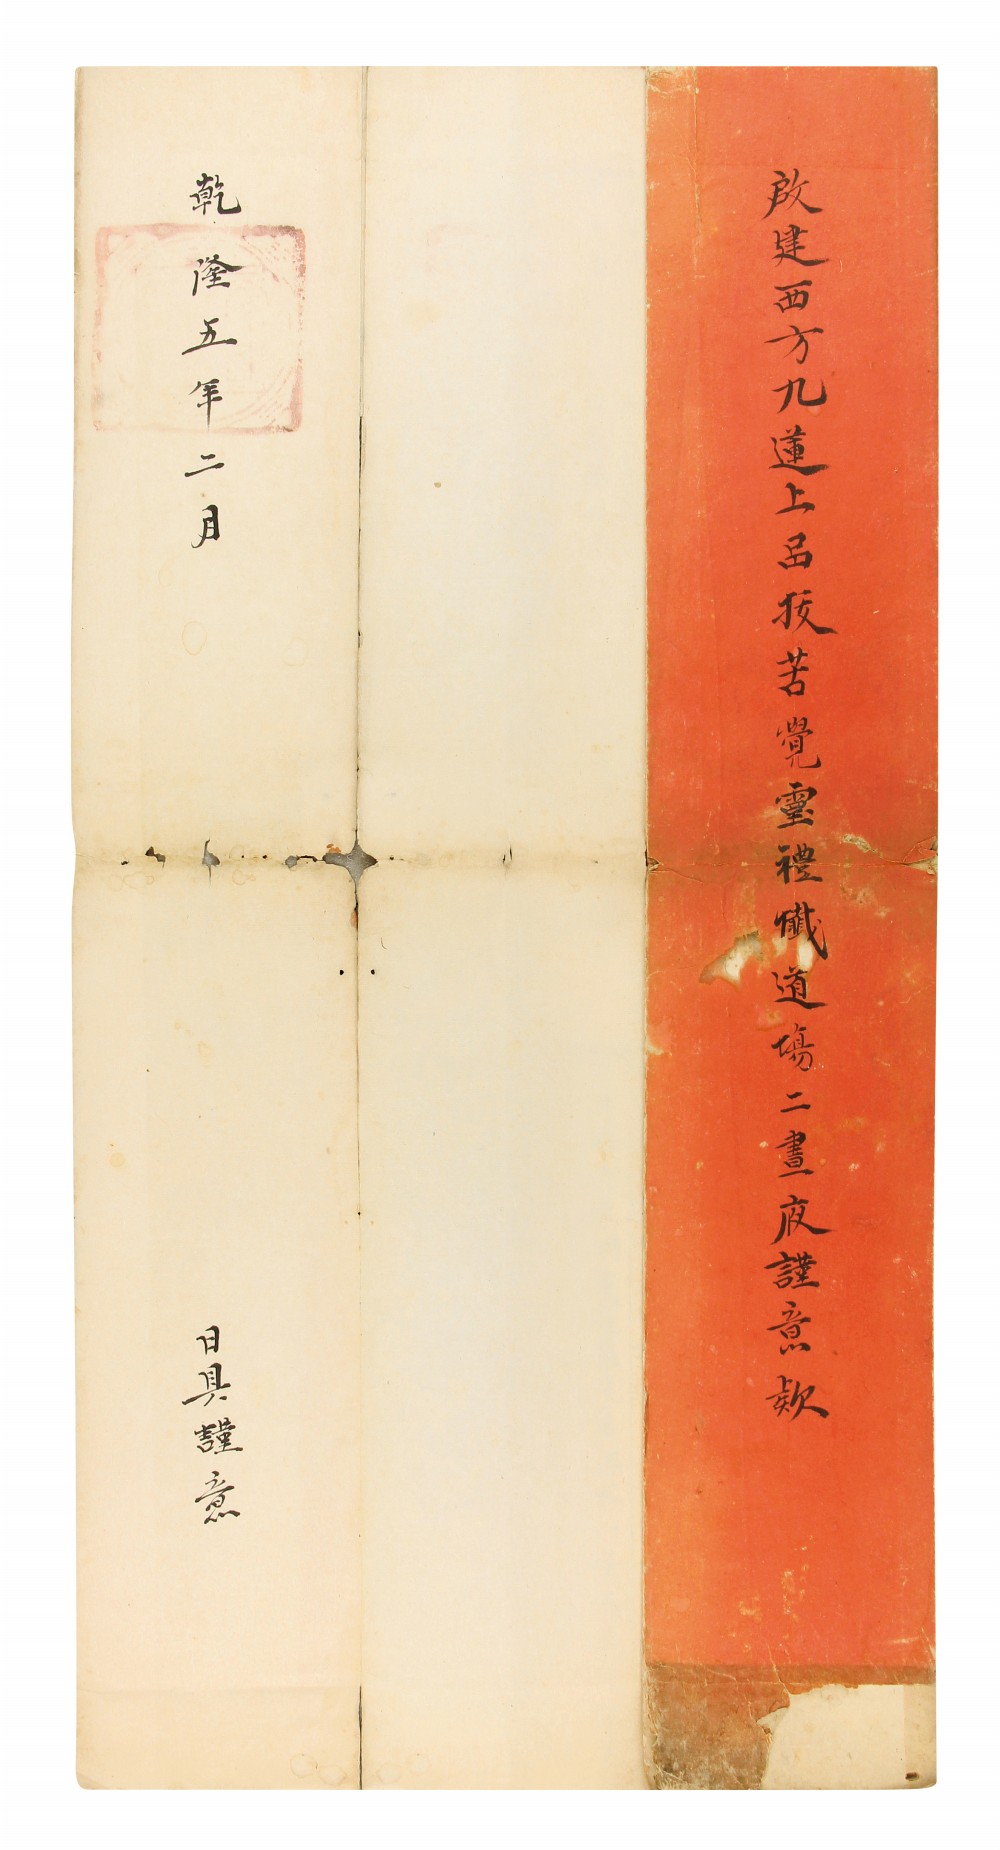 啟建西方九蓮上品拔苦覺靈禮懺道場二晝夜謹意欵
乾隆五年二月 日具謹意